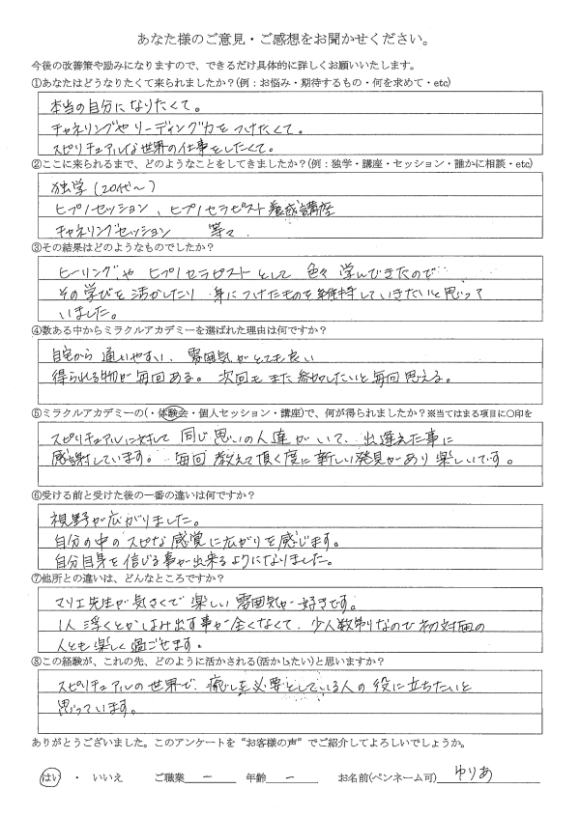 あなた様のご意見・ご感想をお聞かせください。
今後の改善策や励みになりますので、できるだけ具体的に詳しくお願いいたします。
①あなたはどうなりたくて来られましたか？(例：お悩み・期待するもの・何を求めて・etc)
本当の自分になりたくて。
チャネリングやリーディング力をつけたくて。
スピリチュアルな世界の仕事をしたくて。
②ここに来られるまで、どのようなことをしてきましたか？(例：独学・講座・セッション・誰かに相談・etc)
独学(20代〜)
ヒプノセッション、ヒプノセラピスト養成講座
チャネリングセッション 等々
③その結果はどのようなものでしたか？
ヒーリングや ヒプノセラピストとして 色々 学んできたので
その学びを活かしたり 身につけたものを維持していきたいと思って
いました。
④数ある中からミラクルアカデミーを選ばれた理由は何ですか？
自宅から通いやすい、雰囲気がとても良い
得られる物が毎回ある。次回もまた参加したいと毎回思える。
⑤ミラクルアカデミーの(・体験会・個人セッション・講座)で、何が得られましたか？※当てはまる項目に○印を
スピリチュアルに対して 同じ思いの人達がいて、出逢えた事に
感謝しています。毎回教えて頂く度に新しい発見があり楽しいです。
⑥受ける前と受けた後の一番の違いは何ですか？
視野が広がりました。
自分の中のスピな感覚に広がりを感じます。
自分自身を信じる事が出来るようになりました。
⑦他所との違いは、どんなところですか？
マリエ先生が気さくで楽しい雰囲気が好きです。
1人浮くとかはみ出す事が全くなくて、少人数制なので初対面の
人とも楽しく過ごせます。
⑧この経験が、これの先、どのように活かされる(活かしたい)と思いますか？
スピリチュアルの世界で、癒しを必要としている人の役に立ちたいと
思っています。
ありがとうございました。このアンケートを“お客様の声”でご紹介してよろしいでしょうか。
はい ・ いいえ ご職業 ー 年齢 ー お名前(ペンネーム可) ゆりあ